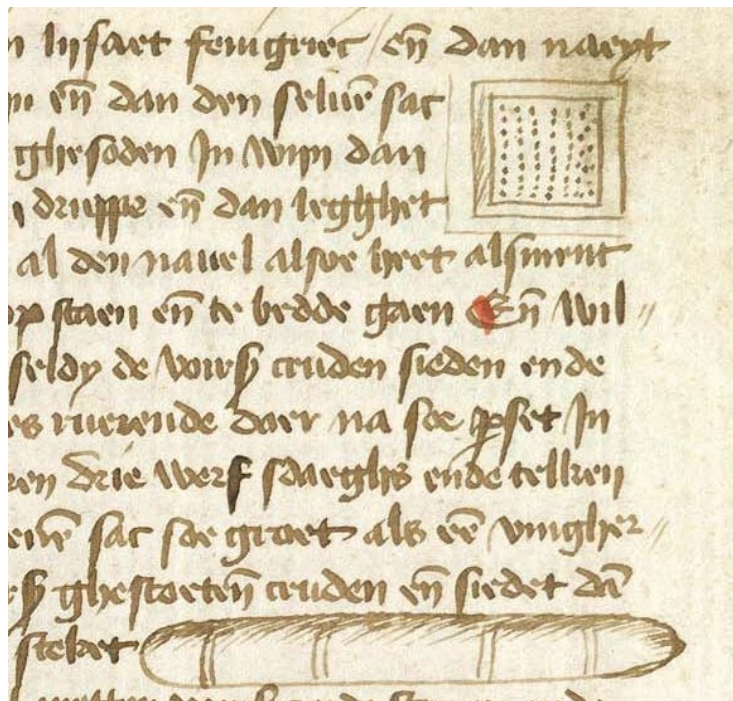 n lijsaet fenigriec / en̄ dan naeyt
en̄ dan den seluē sac
ghesoden In wijn dan
druppe en̄ dan legghet
al den nauel alsoe heet alsment
op staen en̄ te bedde gaen En̄ wil //
seldy de voirs cruden sieden ende
es ruerende daer na soe ꝑset In
ren drie werf sdaeghs ende telken
enē sac soe groet als eē vingher //
ghestoetē cruden en̄ siedet dā
steket